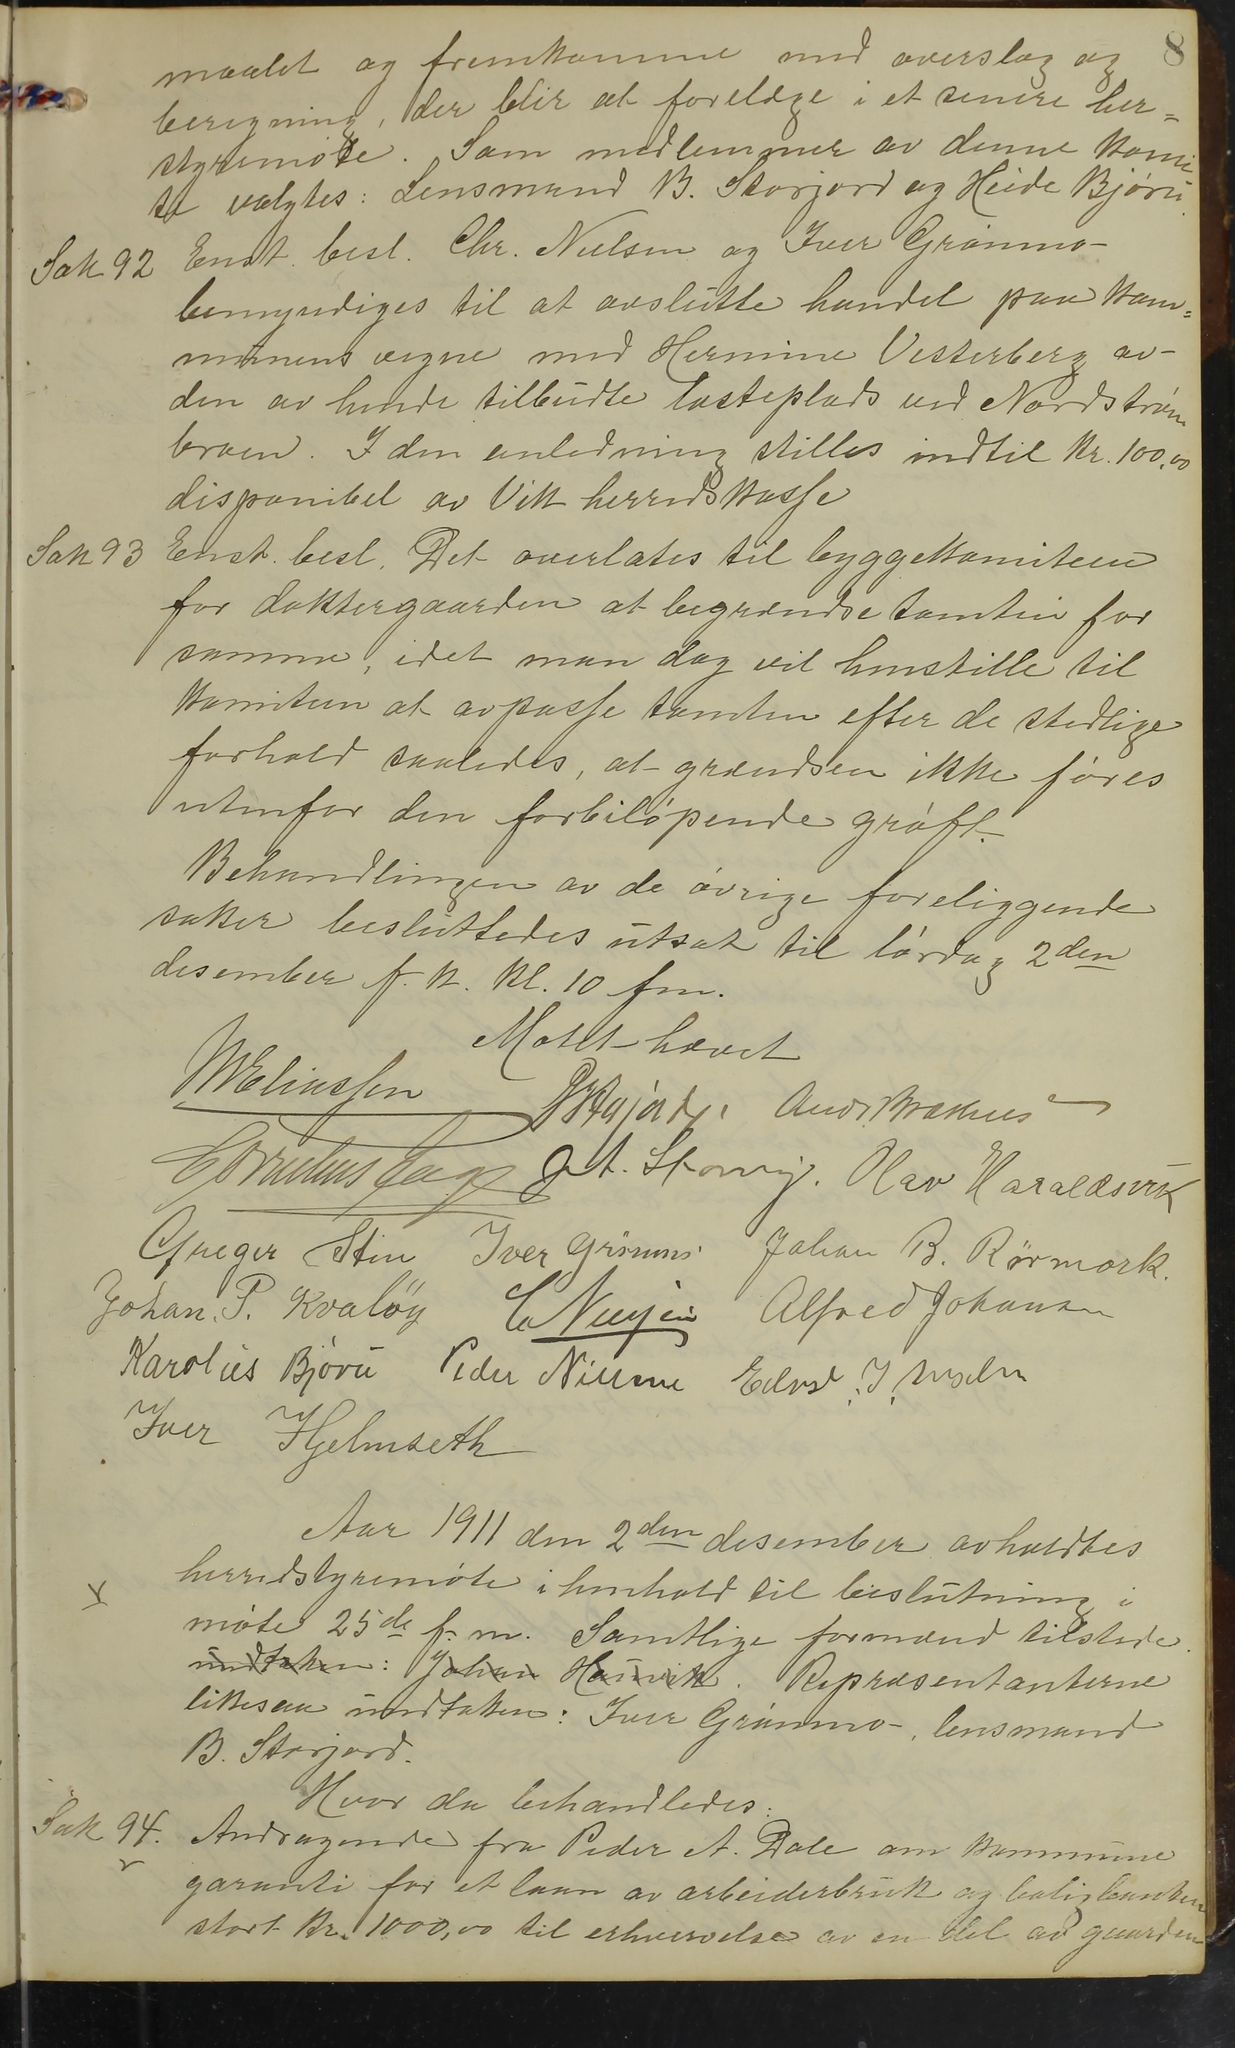 8
maalet og fremkomme med overslag og
beregning, der blir at forelægge i et senere her=
styremøte. Som medlemmer av denne komi
te valgtes: Lensmand B. Storjord og Heide Bjøru
Sak 92 Enst. besl. Chr. Nielsen og Iver Grønmo
bemyndiges til at avslutte handel paa kom=
munens vegne med Hermine Vesterberg av
den av hende tilbudte lasteplads ved Nordstrøm
broen. I den anledning stilles indtil kr. 100,00
disponibel av Vik herredskasse
Sak 93 Enst. besl. Det overlates til byggekomiteen
for doktergaarden at begrændse tomten for
samme, idet man dog vil henstille til
komiteen at avpasse tomten efter de stedlige
forhold saaledes, at grændsen ikke føres
utenfor den forbiløpende grøft.
Behandlingen av de øvrige foreliggende
saker besluttedes utsat til lørdag 2den
desember f. k. kl. 10 fm.
Møtet hævet
Eliassen
Olav Haraldsvik
Greger Stien Iver Grønmo Johan B. Rørmark.
Johan. P. Kvaløy Alfred Johansen
Karolius Bjøru Peder Nilsine
Iver Hjelmseth
Aar 1911 den 2den desember avholdtes
herredstyremøte i henhold til beslutning i
møte 25de f. m. Samtlige formænd tilstede.
undtaken: Johan Haivik. Repræsentanterne
likesaa undtaken: Iver Grønmo, lensmand
B. Storjord.
Hvor da behandledes:
Sak 94. Andragende fra Peder A. Dale om kommune
garanti for et laan av arbeiderbruk og boligbanken
stort kr. 1000,00 til erhvervelse av en del av gaarden